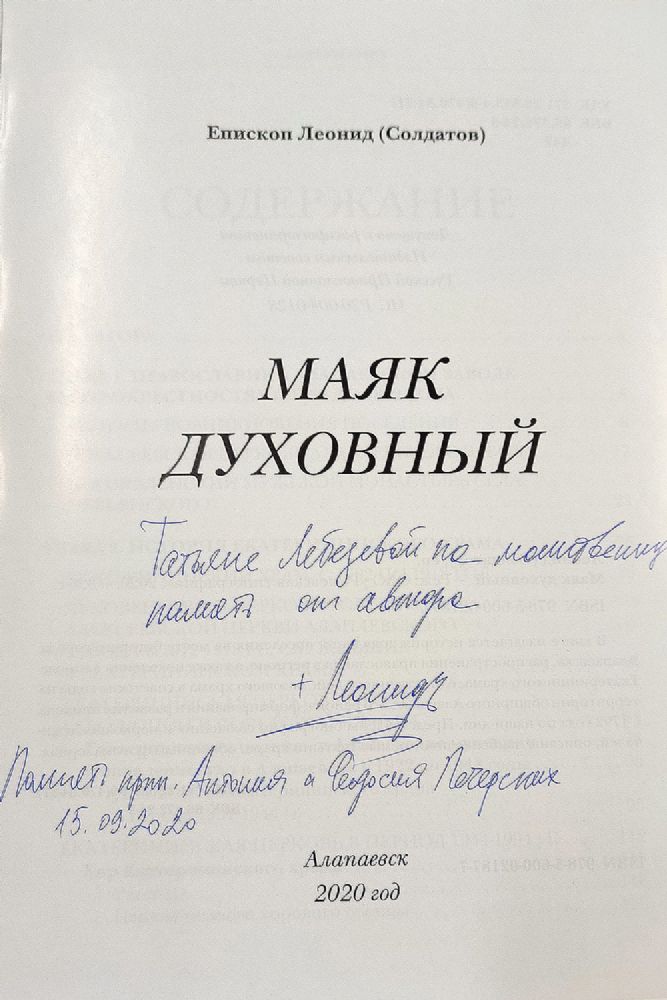 Епископ Леонид (Солдатов)
МАЯК
ДУХОВНЫЙ
Татьяне Лебезевой на молитвенную
память от автора
+ Леонидъ
Память прпп. Антония и Феодосия Печерских
15.09.2020
Алапаевск
2020 год